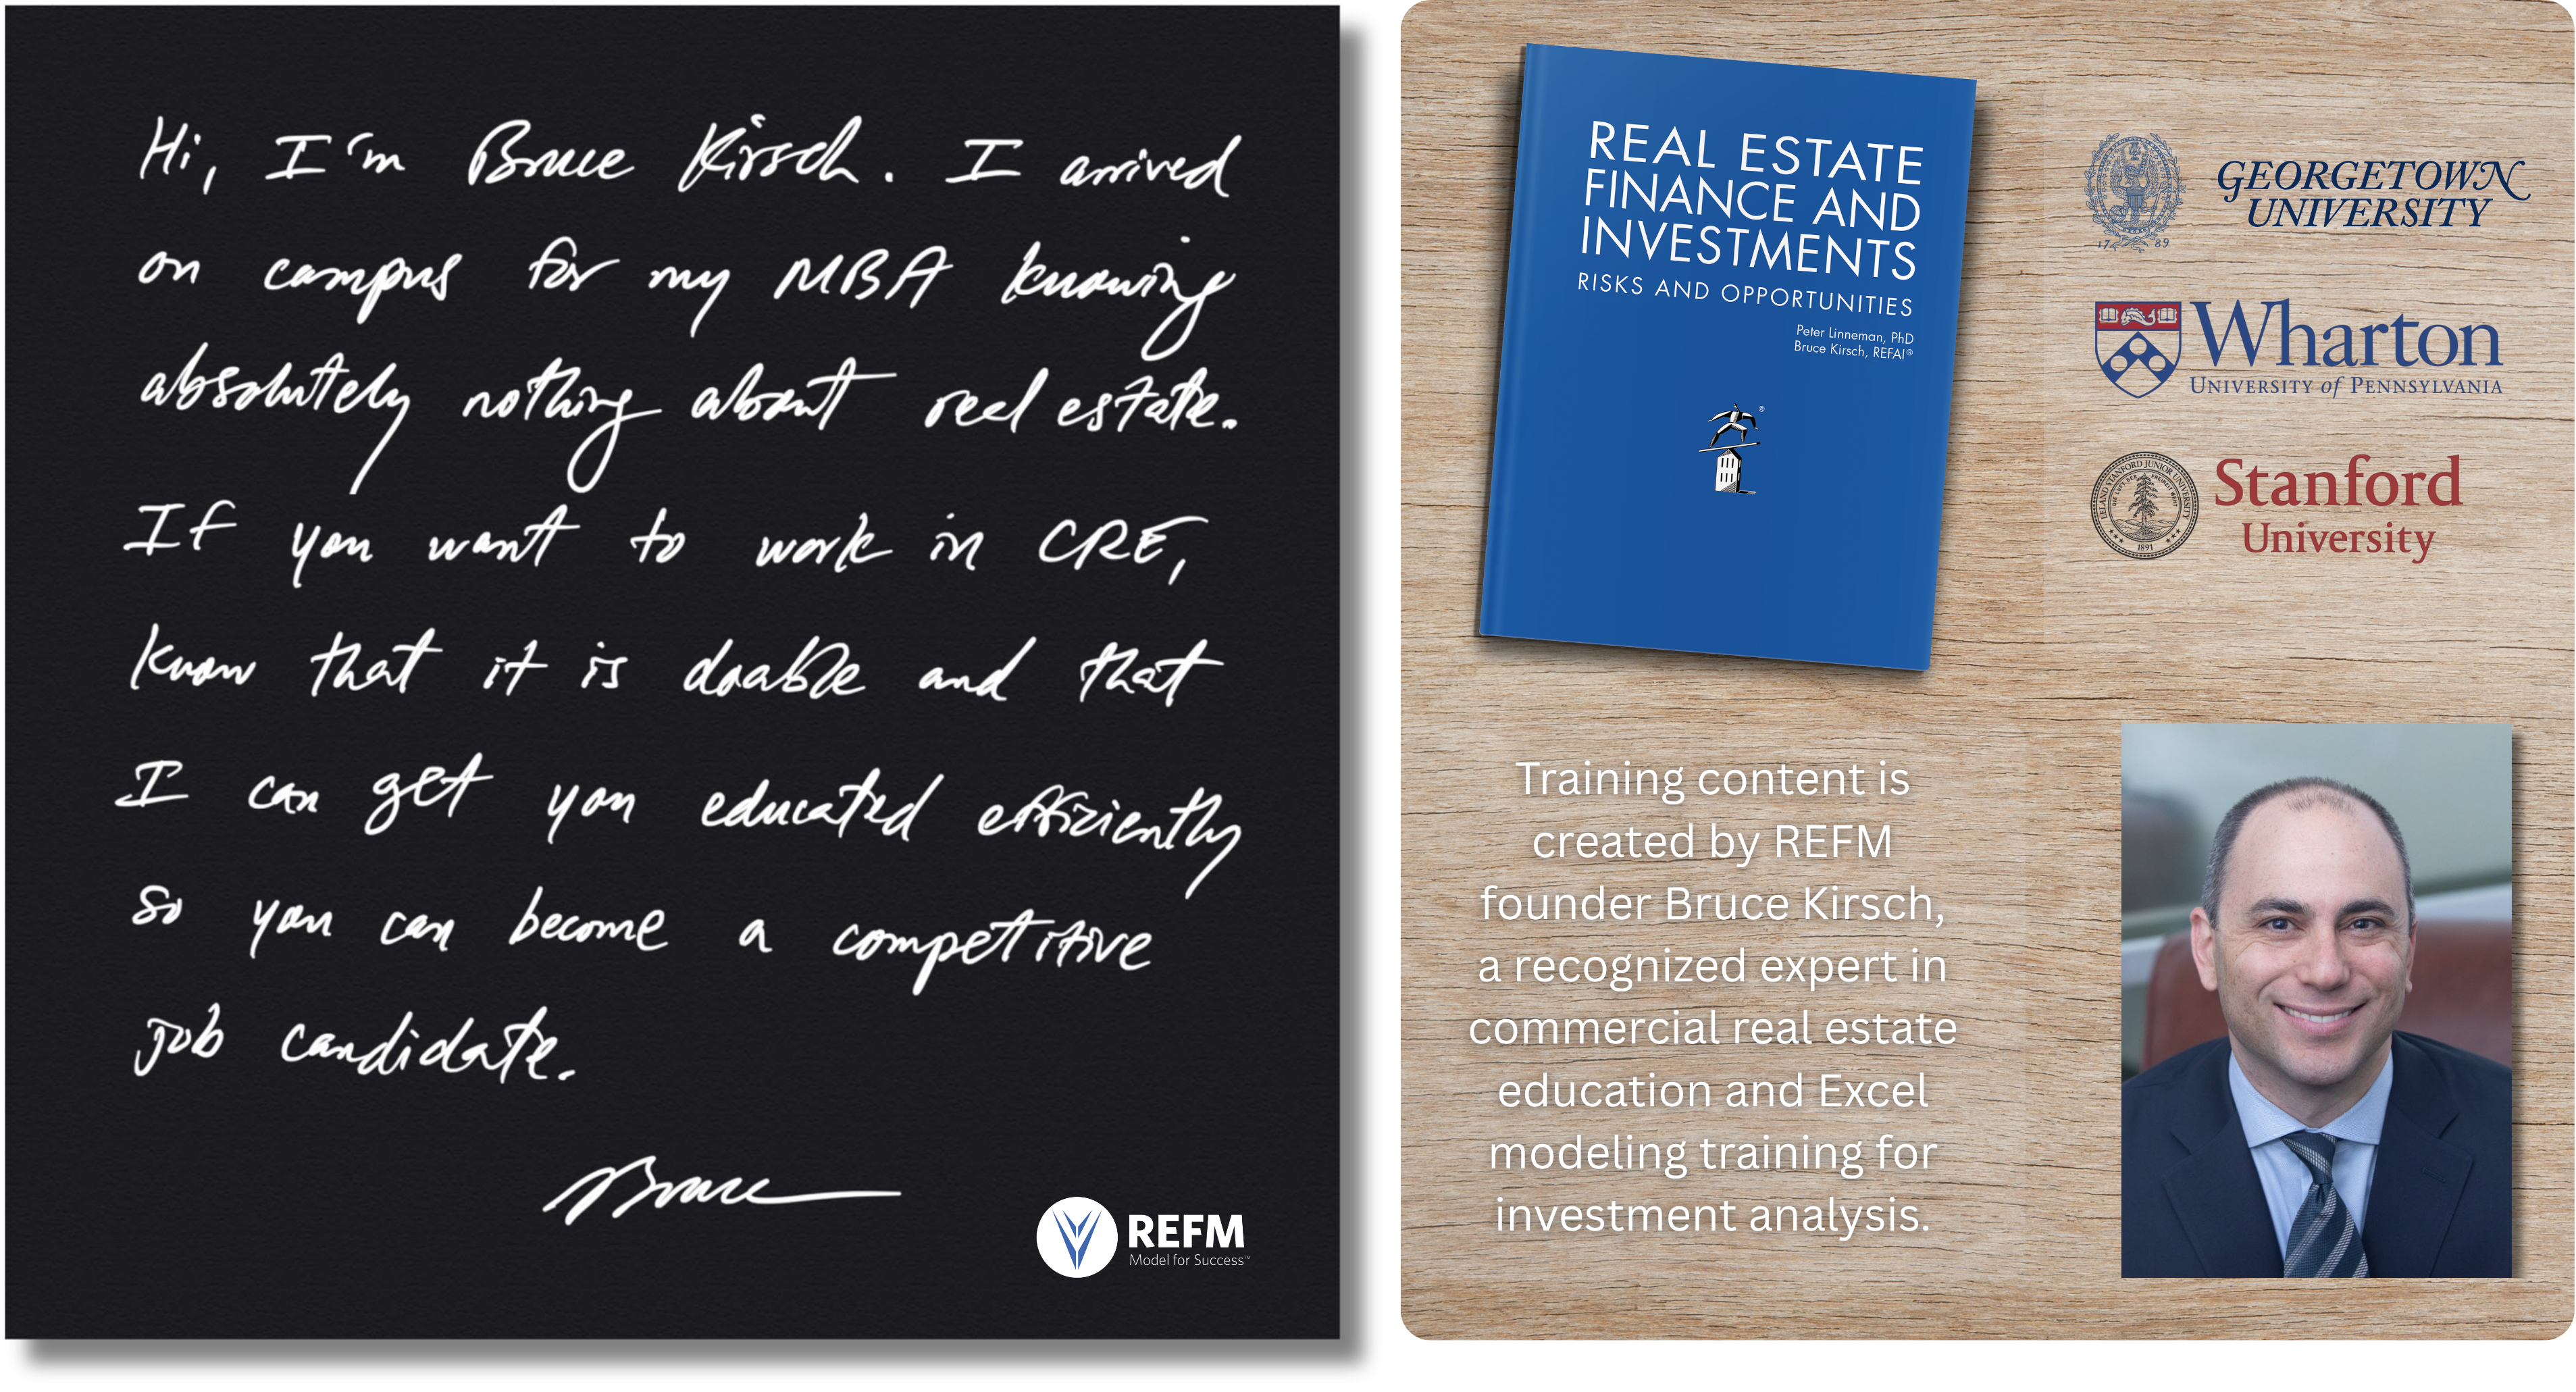 Hi, I'm Bruce Kirsch. I arrived
on campus for my MBA knowing
absolutely nothing about real estate.
If you want to work in CRE,
know that it is doable and that
I can get you educated efficiently
so you can become a competitive
job candidate.
Bruce
REFM
Model for Success™
REAL ESTATE
FINANCE AND
INVESTMENTS
RISKS AND OPPORTUNITIES
Peter Linneman, PhD
Bruce Kirsch, REFAI®
®
GEORGETOWN
UNIVERSITY
17 89
Wharton
UNIVERSITY of PENNSYLVANIA
LELAND STANFORD JUNIOR UNIVERSITY
1891
Stanford
University
Training content is
created by REFM
founder Bruce Kirsch,
a recognized expert in
commercial real estate
education and Excel
modeling training for
investment analysis.